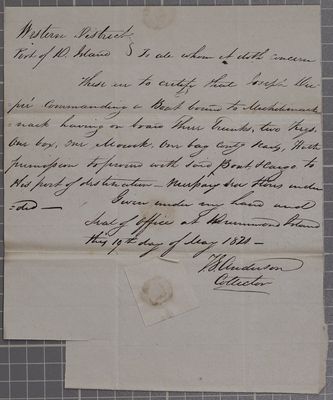 Western District
Port of D. Island } To all whom it doth concern
These are to certify that Joseph
Commanding a Boat bound to Michilimack
=nack having on board Three Trunks, two Kegs.
One box, One One bag With
permission to proceed with said Boat & Cargo to
His port of destination —
=ded —
Given under my hand and
Seal of Office at Drummond Island
this 19th day of May 1820 —
Anderson
Collector